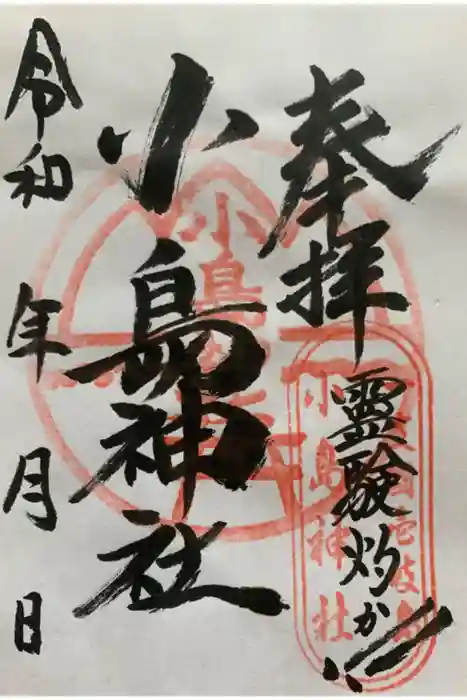 奉拝
霊験灼か
国壱岐島
小島神社
小島神社
小島神社
令和 年 月 日